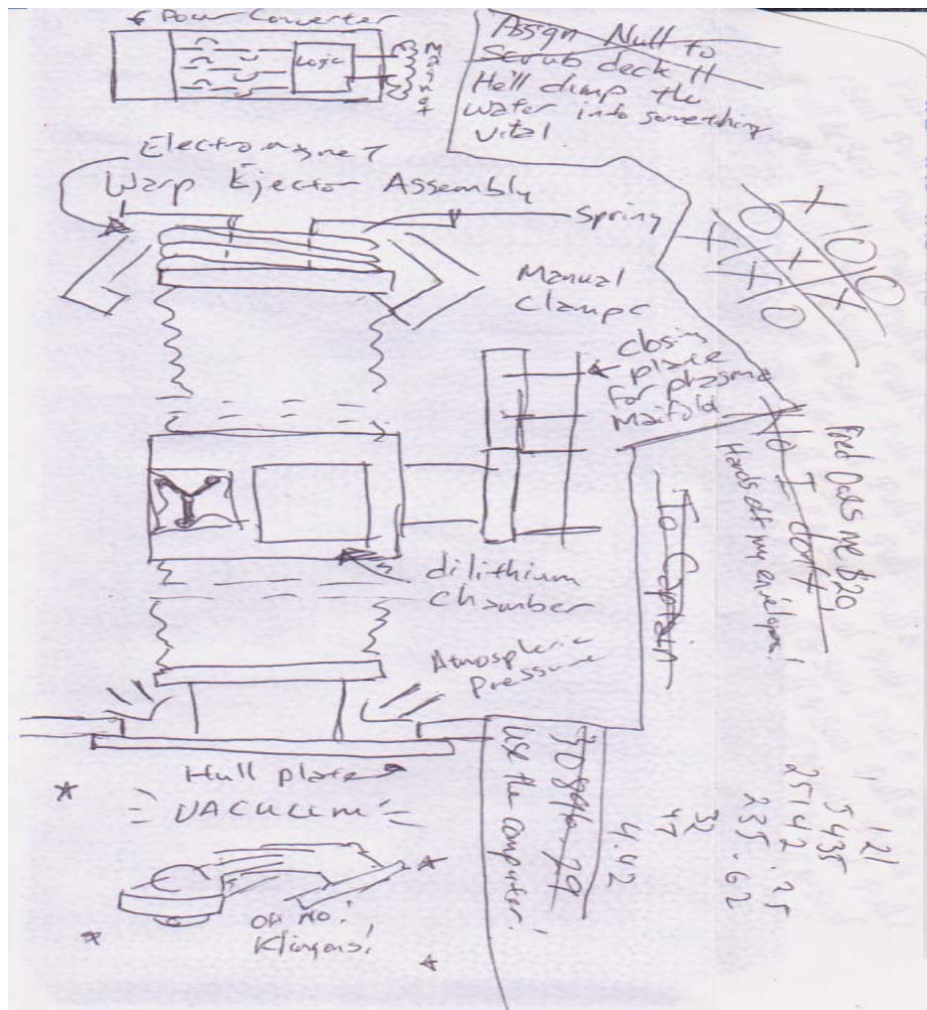 Power Converter
Logic
Magnet
Assign Null to
Scrub deck 11
He'll dump the
water into something
vital
Electromagnet
Warp Ejector Assembly
Spring
Manual
Clamps
closing
plate
for plasma
Maifold
dilithium
chamber
Atmospheric
Pressure
Hull plate
VACUUM
OH NO!
Klingons!
X O O
O X X
X X O
Fred Owes me $20
No I don't!
Hands off my envelope!
To Captain
121
5435
25142.25
235.62
32
47
4.42
Use the computer!